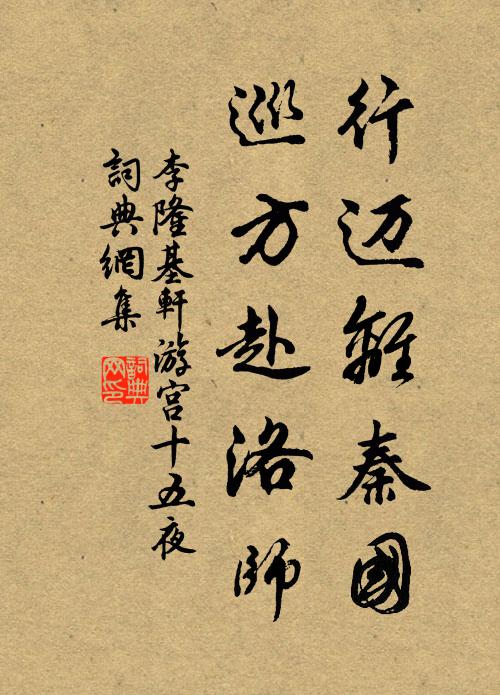 行迈離秦國
巡方赴洛師
李隆基軒游宫十五夜
詞典網集
詞典
网印